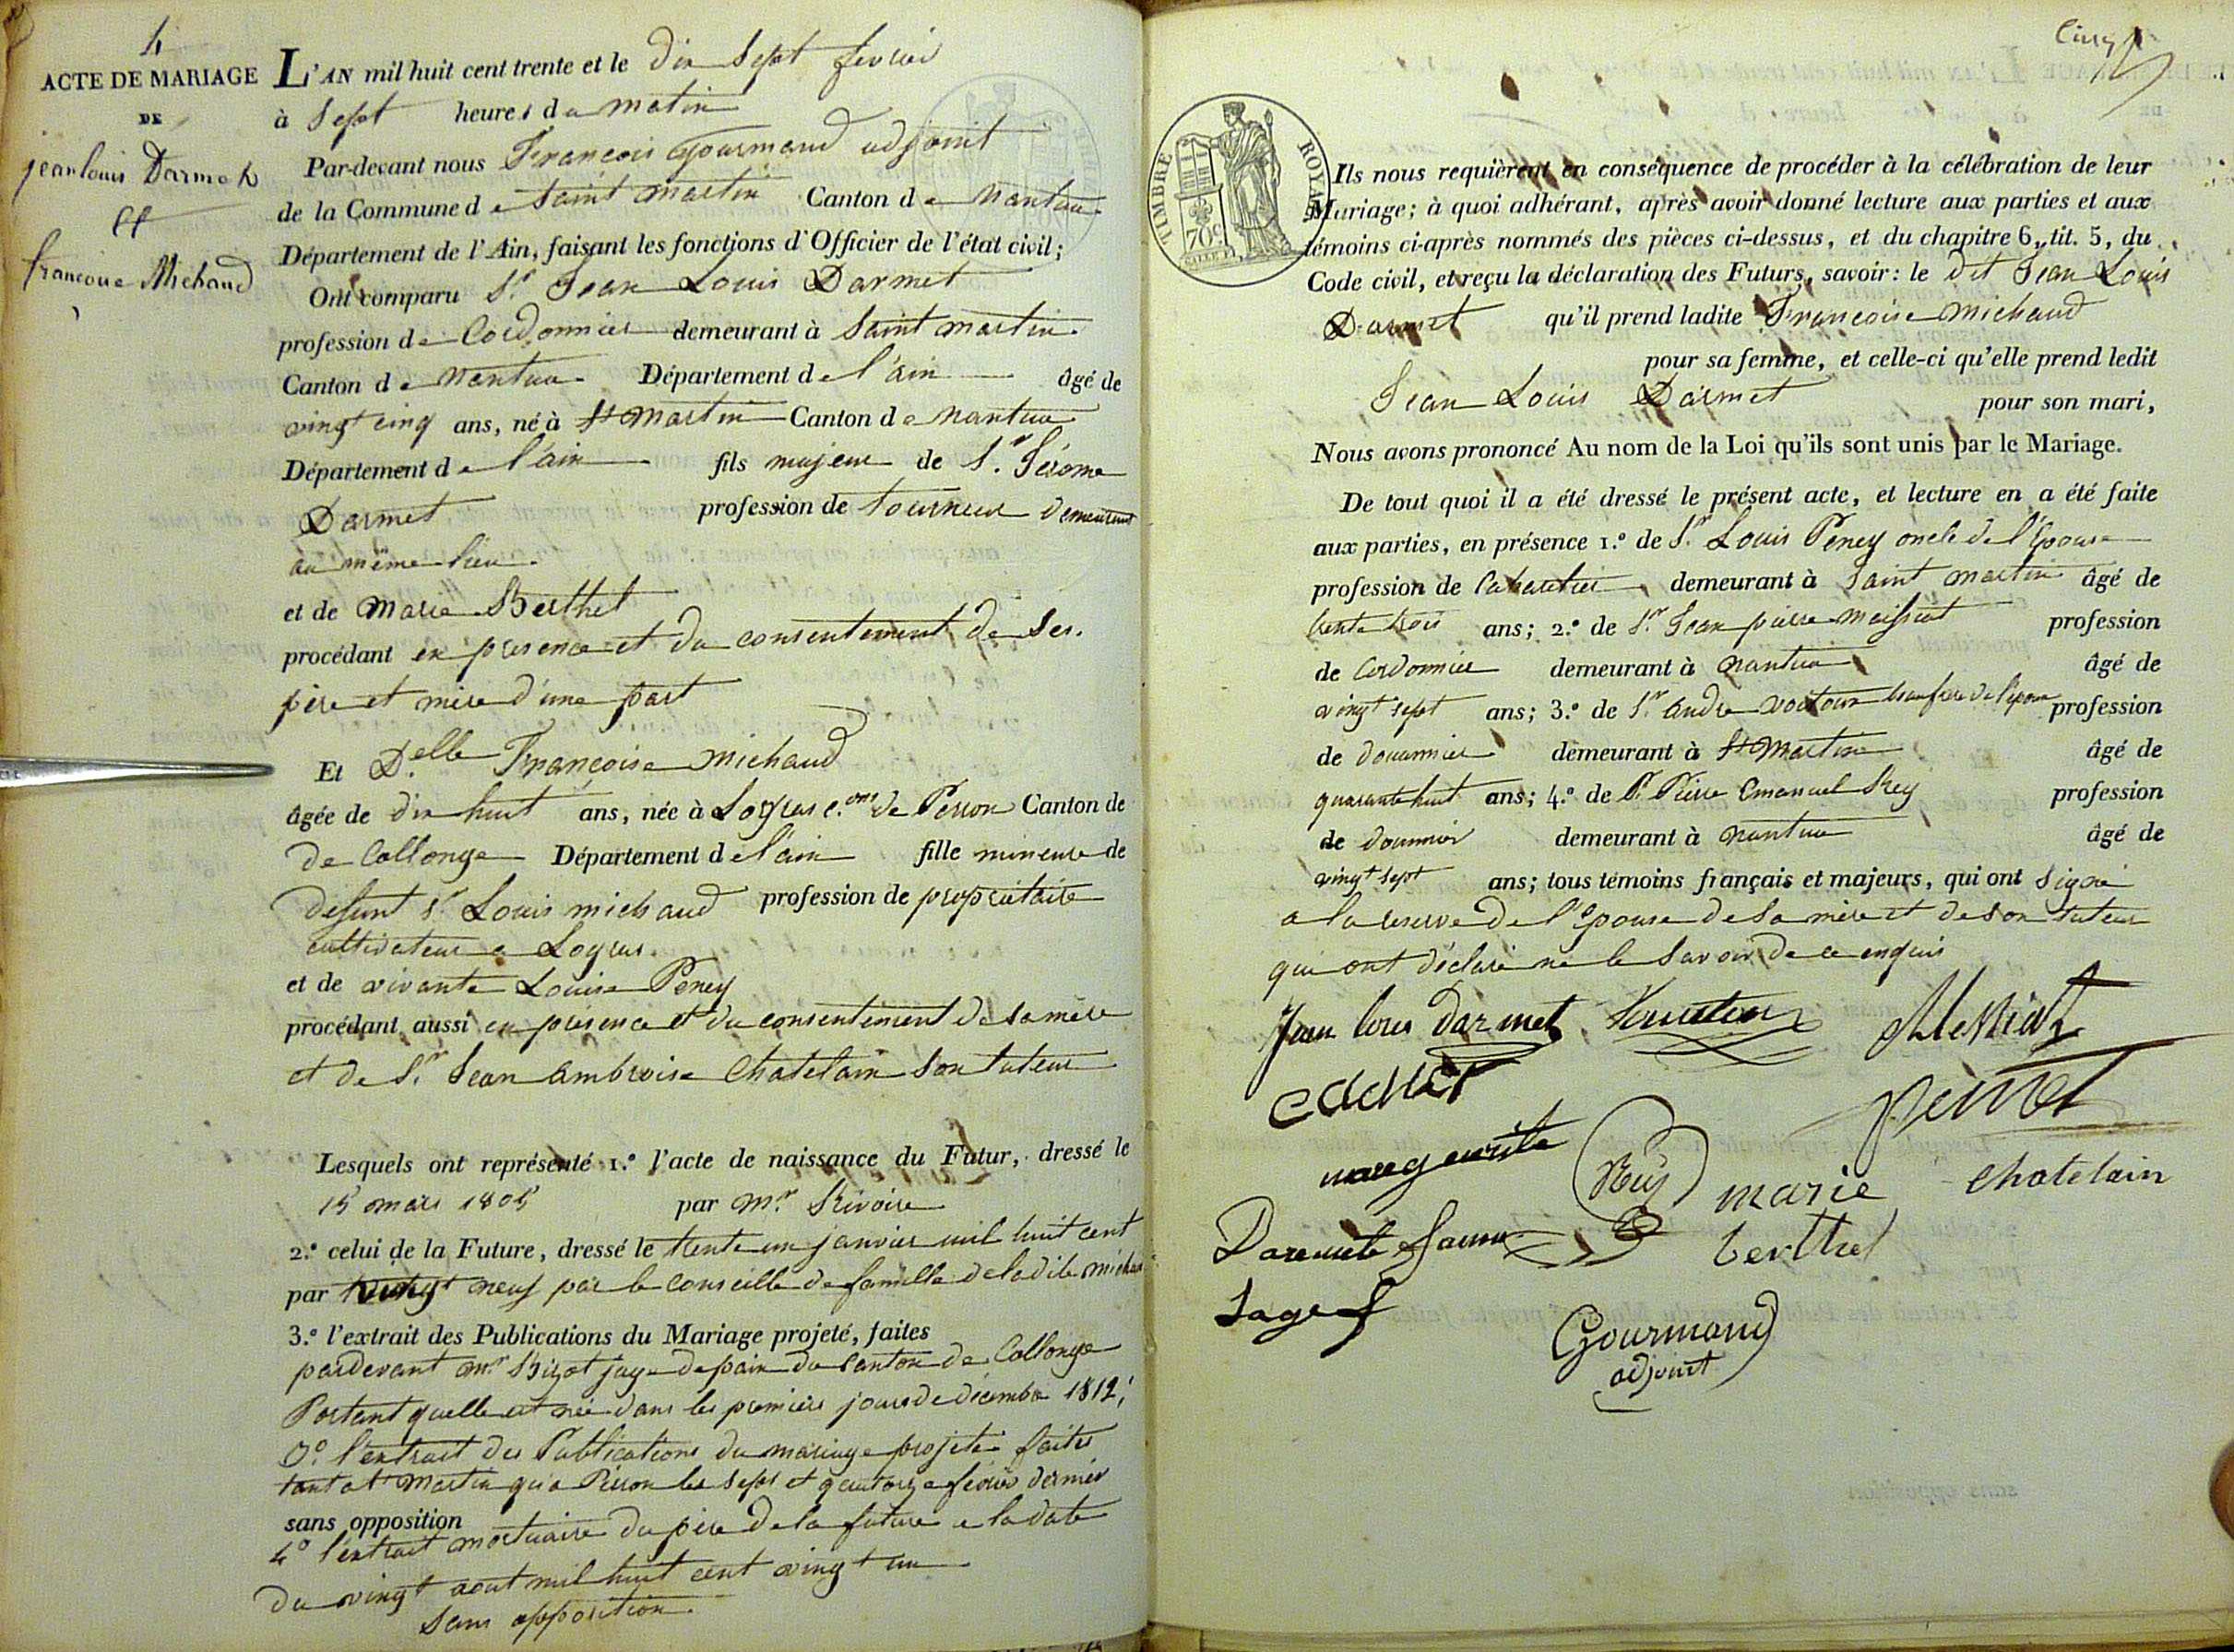 4
ACTE DE MARIAGE
DE
jean louis Darmet
et
francoise Michaud
L'AN mil huit cent trente et le dix Sept fevrier
à Sept heures du matin
Par-devant nous François Gourmand adjoint
de la Commune de Saint martin Canton de Nantua
Département de l'Ain, faisant les fonctions d'Officier de l'état civil;
Ont comparu Sr Jean Louis Darmet
profession de Cordonnier demeurant à Saint martin
Canton de Nantua Département de l'ain âgé de
vingt cinq ans, né à St Martin Canton de Nantua
Département de l'ain fils majeur de Sr Jérome
Darmet profession de tourneur demeurant
au même lieu
et de Marie Berthet
procédant en presence et du consentement de Ses
père et mère d'une part
Et Delle Françoise Michaud
âgée de dix huit ans, née à Logras c.on de Péron Canton de
de Collonge Département de l'ain fille mineure de
defunt Sr Louis michaud profession de propriétaire
cultivateur a Logras
et de vivante Louise Peney
procédant aussi en presence et du consentement de sa mère
et de Sr Jean Ambroise Chatelain Son tuteur
Lesquels ont représenté 1.º l'acte de naissance du Futur, dressé le
15 mars 1805 par Mr Rivoire
2.º celui de la Future, dressé le trente un janvier mil huit cent
par vingt neuf par le conseille de famille de ladite michau
3.º l'extrait des Publications du Mariage projeté, faites
pardevant Mr Bizot juge de paix du Canton de Collonge
Portant quelle est née dans les premiers jours de décembre 1812;
3º l'extrait des Publications du mariage projeté faites
tant a St Martin qu'a Péron les sept et quatorze février dernier
sans opposition
4º l'extrait mortuaire du père de la future a la date
du vingt aout mil huit cent vingt un
Sans opposition.
Cinq
TIMBRE ROYAL
70c
Ils nous requièrent en conséquence de procéder à la célébration de leur
Mariage; à quoi adhérant, après avoir donné lecture aux parties et aux
témoins ci-après nommés des pièces ci-dessus, et du chapitre 6, tit. 5, du
Code civil, et reçu la déclaration des Futurs, savoir: le dit Jean Louis
Darmet qu'il prend ladite Françoise Michaud
pour sa femme, et celle-ci qu'elle prend ledit
Jean Louis Darmet pour son mari,
Nous avons prononcé Au nom de la Loi qu'ils sont unis par le Mariage.
De tout quoi il a été dressé le présent acte, et lecture en a été faite
aux parties, en présence 1.º de Sr Louis Peney oncle de l'Epouse
profession de Cabaretier demeurant à Saint martin âgé de
trente trois ans; 2.º de Sr Jean pierre Maissiat profession
de Cordonnier demeurant à Nantua âgé de
vingt sept ans; 3.º de Sr André beaufrere de l'épouse profession
de douannier demeurant à St Martin âgé de
quarante huit ans; 4.º de Sr Pierre Emanuel Rey profession
de douannier demeurant à Nantua âgé de
vingt sept ans; tous témoins français et majeurs, qui ont Signé
a la reserve de l'Epouse de sa mère et de son tuteur
qui ont déclaré ne le Savoir de ce enquis
Jean louis Darmet
Rey
marie
berthet
Chatelain
Gourmand
adjoint